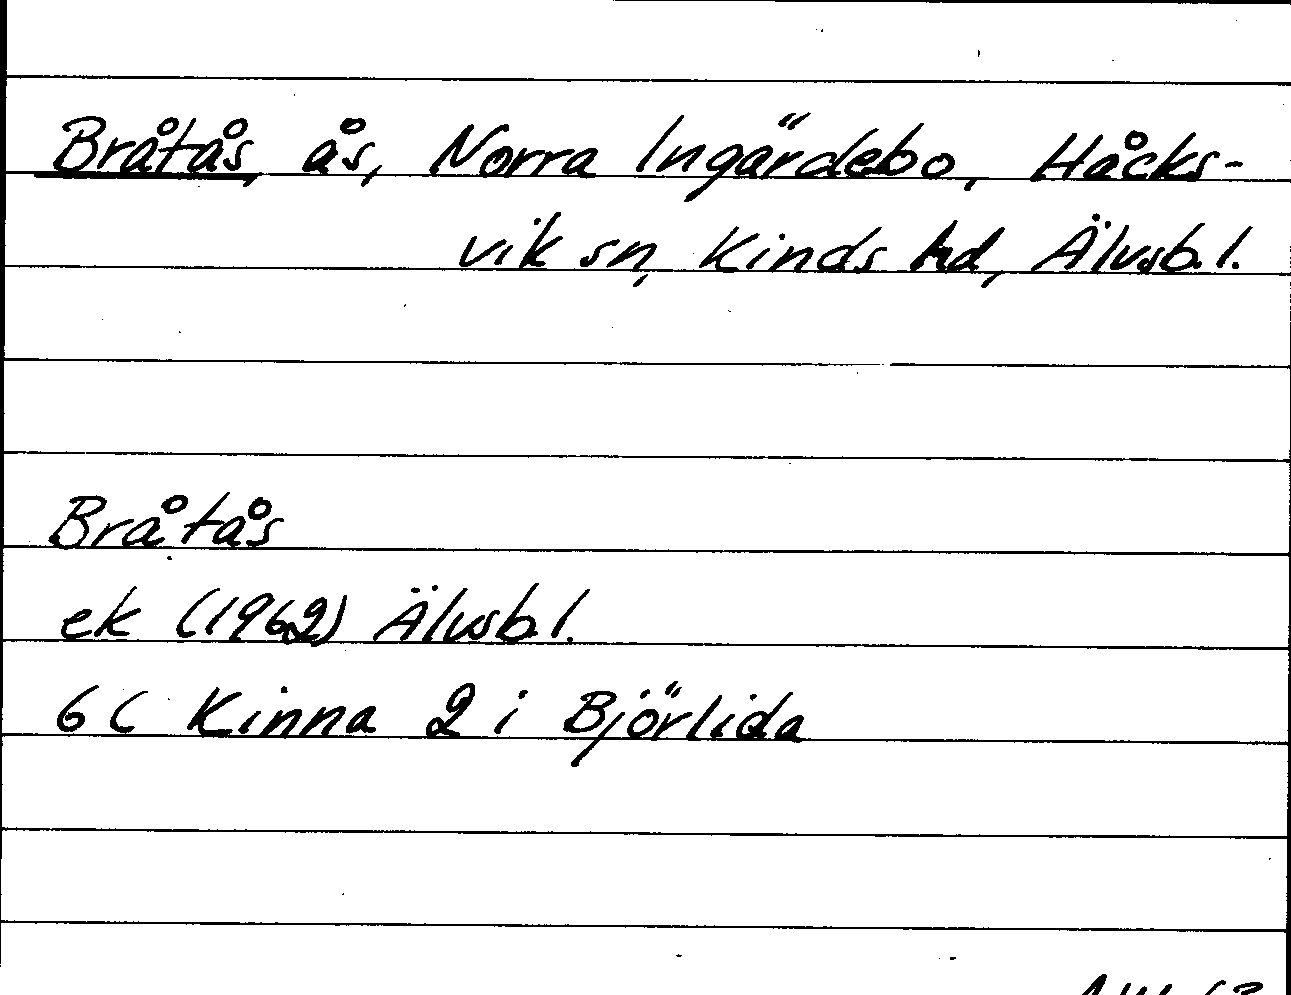 Bråtås, ås, Norra Ingärdebo, Håcks-
vik sn, Kinds hd, Älvsb. l.
Bråtås
ek (1962) Älvsb. l.
6 C Kinna 2 i Björlida